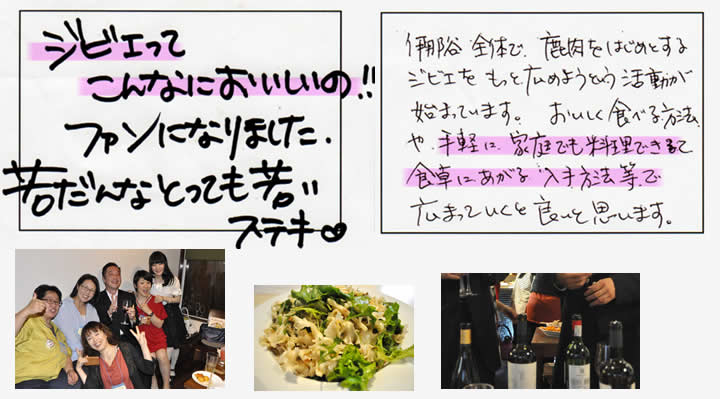 ジビエって
こんなにおいしいの!!
ファンになりました.
若だんなとっても若い
ステキ
伊那谷全体で、鹿肉をはじめとする
ジビエをもっと広めようという活動が
始まっています。 おいしく食べる方法、
や、手軽に、家庭でも料理できるて
食卓にあがる 入手方法等、で
広まっていくと良いと思います。